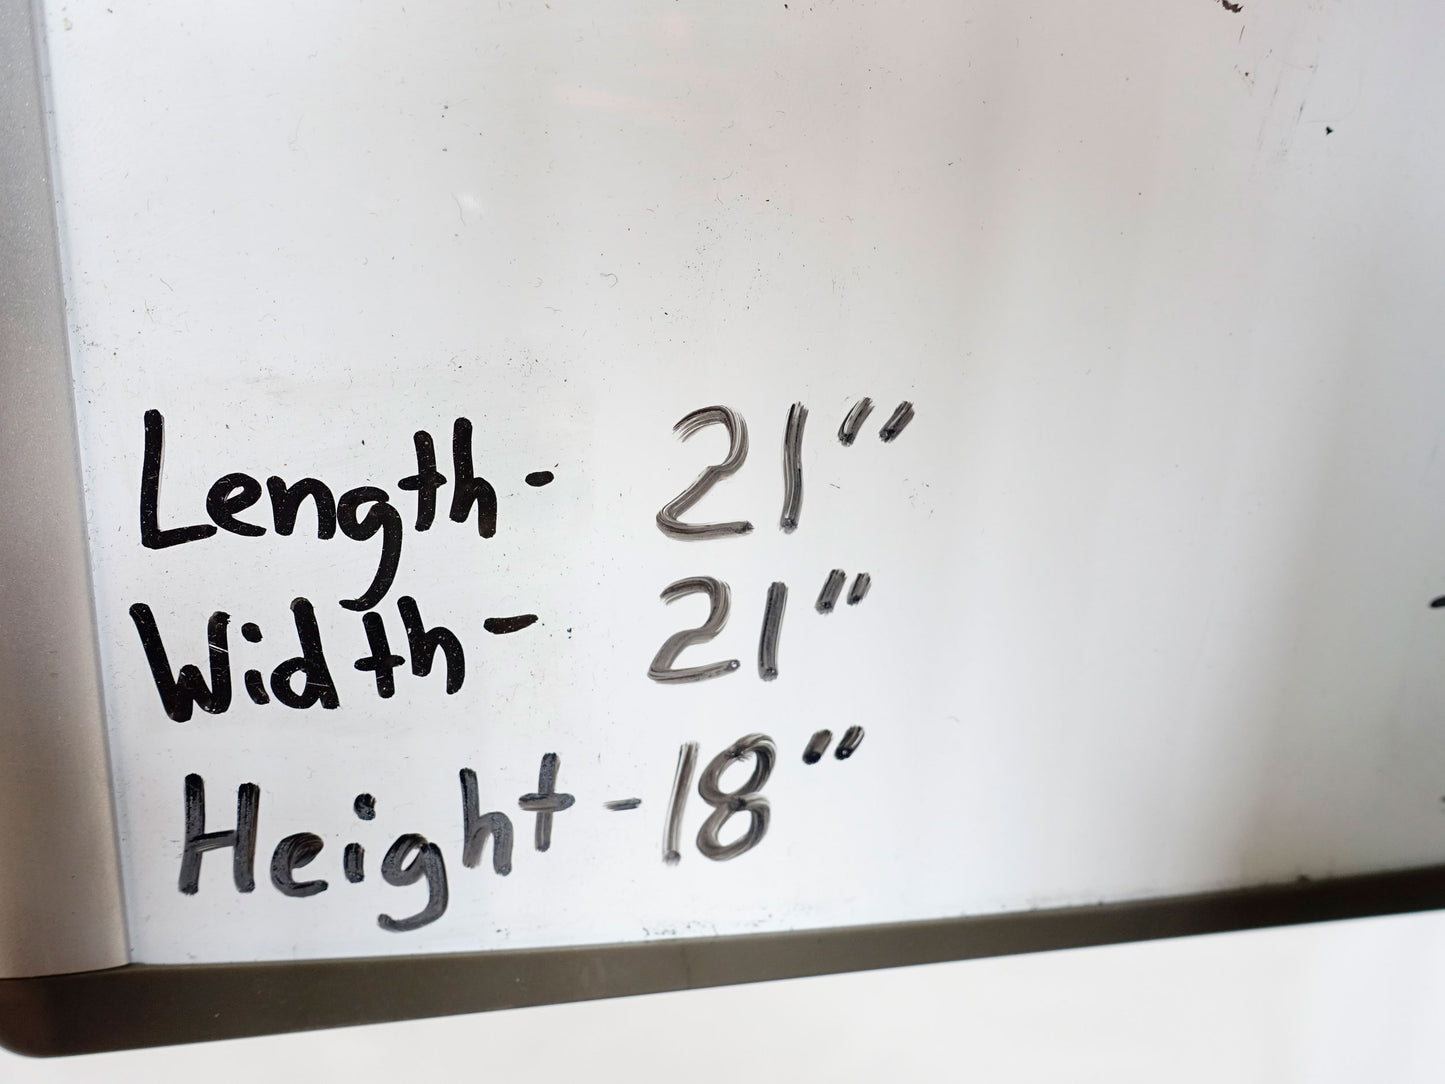 Length - 21"
Width - 21"
Height - 18"